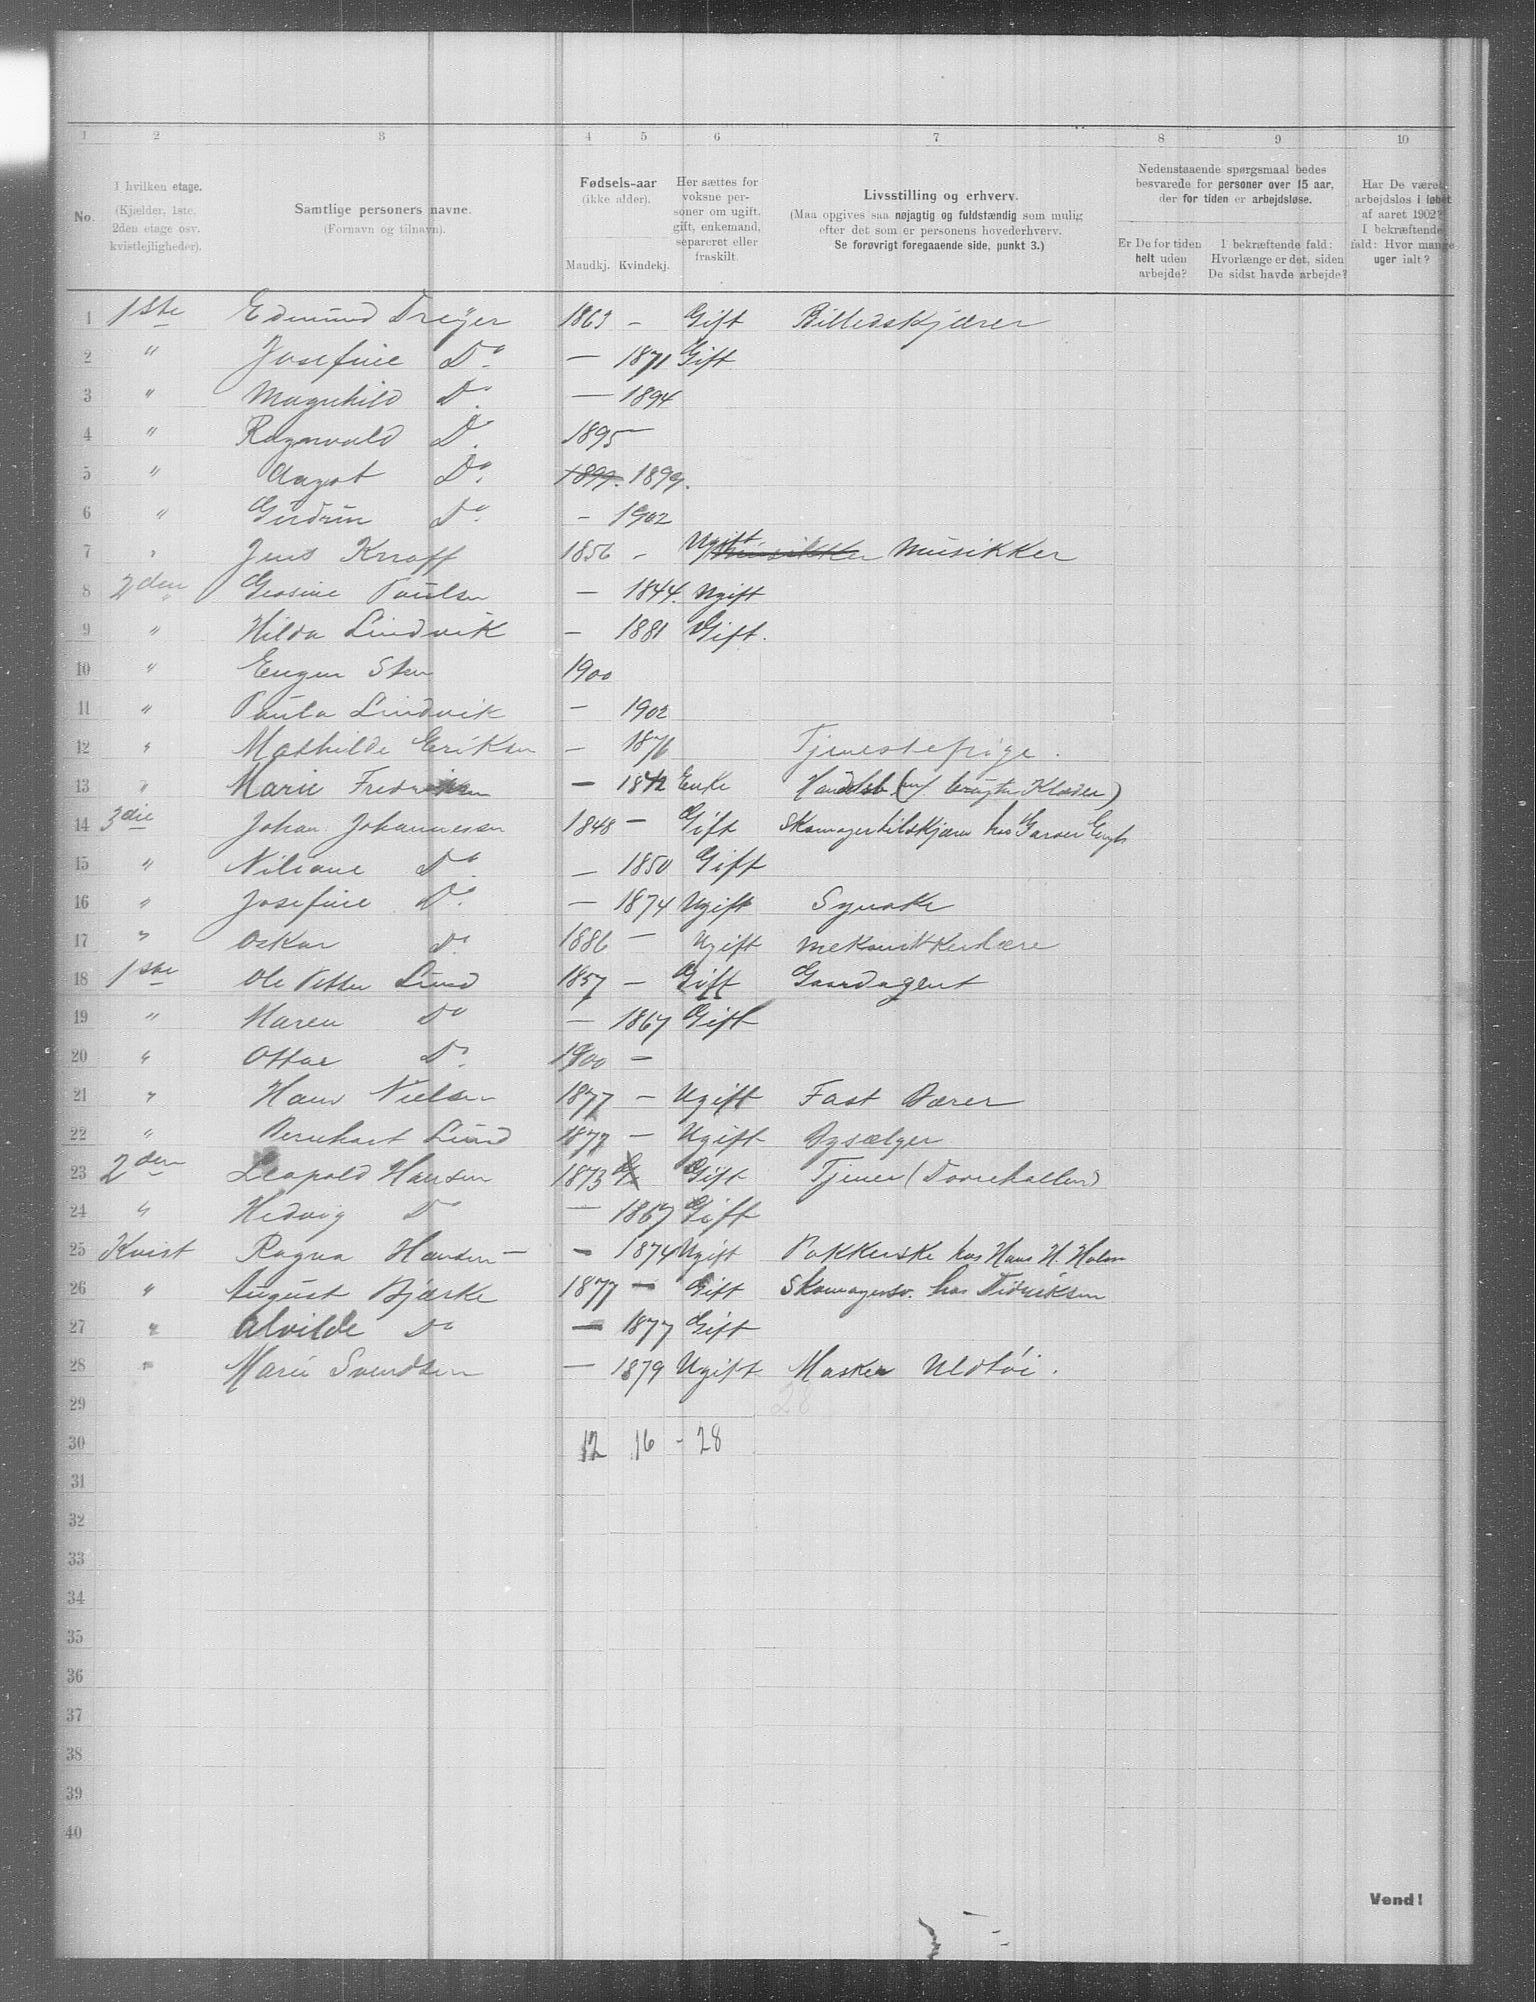 1 2 3 4 5 6 7 8 9 10
No.
I hvilken etage.
(Kjælder, 1ste, 2den etage osv. kvistlejligheder).
Samtlige personers navne.
(Fornavn og tilnavn).
Fødsels-aar
(ikke alder).
Mandkj. Kvindekj.
Her sættes for voksne personer om ugift, gift, enkemand, separeret eller fraskilt.
Livsstilling og erhverv.
(Maa opgives saa nøjagtig og fuldstændig som mulig efter det som er personens hovederhverv.
Se forøvrigt foregaaende side, punkt 3.)
Nedenstaaende spørgsmaal bedes besvarede for personer over 15 aar, der for tiden er arbejdsløse.
Er De for tiden helt uden arbejde?
I bekræftende fald: Hvorlænge er det, siden De sidst havde arbejde?
Har De været arbejdsløs i løbet af aaret 1902? I bekræftende fald: Hvor mange uger ialt?
1 1ste Edmund Dreÿer 1863 - Gift Billedskjærer
2 " Josefine Do. - 1871 Gift
3 " Magnhild Do. - 1894
4 " Ragnvald Do. 1895 -
5 " Aagot Do. 1899. 1899.
6 " Gudrun Do. - 1902
7 " Jens Knoff 1856 - Ugift Musikker Musikker
8 2den " Gosine Paulsen - 1844. Ugift
9 " Hilda Lindvik - 1881 Gift.
10 " Eugen Sten 1900
11 " Paula Lindvik - 1902
12 " Mathilde Eriksen - 1876 Tjenestepige.
13 " Marie Fredriksen - 1842 Enke Handelsb. (m. brugte Klæder)
14 3die Johan Johannesen 1848 - Gift Skomagertilskjærer hos Garver
15 " Niliane Do. - 1850 Gift
16 " Josefine Do. - 1874 Ugift Syerske
17 " Oskar Do. 1886 - Ugift Mekanikkerlære
18 1ste Ole Petter Lund 1857 - Gift Gaardagent
19 " Maren Do - 1867 Gift
20 " Ottar Do. 1900 -
21 " Hans Nielsen 1877 - Ugift Fast Bærer
22 " Bernhart Lund 1877 - Ugift Bysælger
23 2den Leopold Hansen 1873 G Gift Tjener (Dovrehallen)
24 " Hedvig Do - 1867 Gift
25 Kvist Ragna Hansen - - 1874 Ugift Pakkerske hos Hans H. Holm
26 " August Bjerke 1877 - Gift Skomagersv. hos Didriksen
27 " Alvilde Do - 1877 Gift
28 " Marie Svendsen - 1879 Ugift Uldtøi.
29 28
30 12 16 - 28
31
32
33
34
35
36
37
38
39
40
Vend!